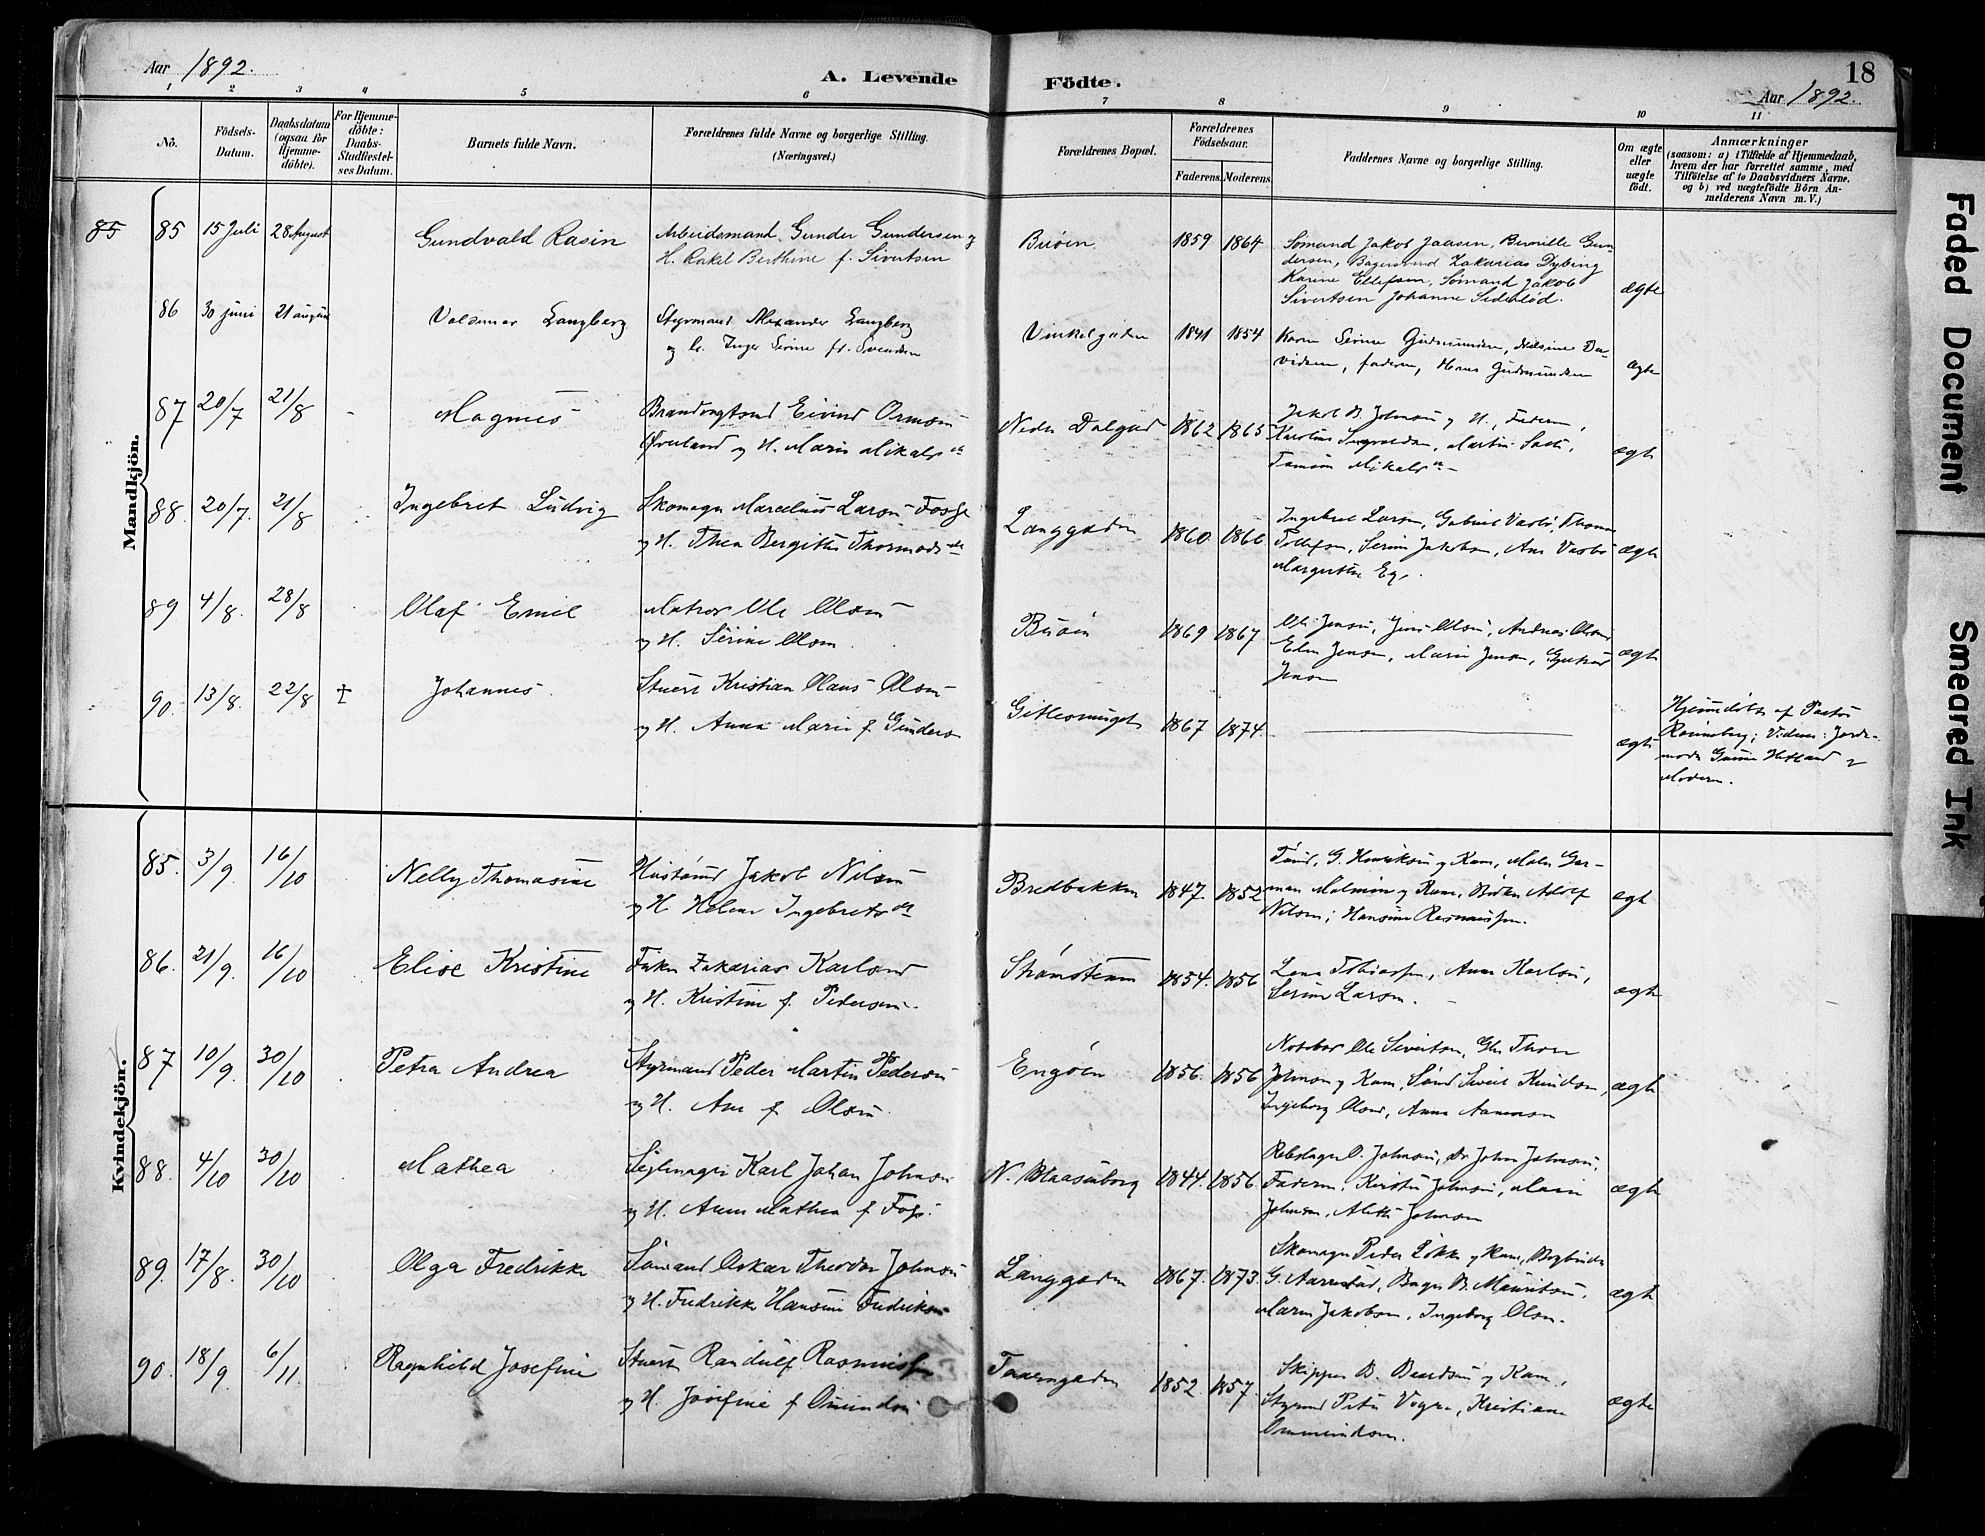 Aar 1892.
A. Levende
Födte.
18
Aar 1892.
1 2 3 4 5 6 7 8 9 10 11
No.
Födsels-
Datum.
Daabsdatum
(ogsaa for
Hjemme-
döbte).
For Hjemme-
döbte:
Daabs-
Stadfæstel-
ses Datum.
Barnets fulde Navn.
Forældrenes fulde Navne og borgerlige Stilling.
(Næringsvei.)
Forældrenes Bopæl.
Forældrenes
Födselsaar.
Faderens. Moderens.
Faddernes Navne og borgerlige Stilling.
Om ægte
eller
uægte
födt.
Anmærkninger
(saasom: a) i Tilfælde af Hjemmedaab,
hvem der har forrettet samme, med
Tilföielse af to Daabsvidners Navne.
og b) ved uægtefödte Börn An-
melderens Navn m. V.)
Mandkjön.
85 85 15 Juli 28 August Gundvald Rasin
Arbeidsmand Gunder Gundersen og
H. Rakel Berthine f. Sivertsen
Buöen 1859 1864
Sömand Jakob Jaasen, Gun-
dersen, Zakarias Dybing
Karine Ellefsen, Sömand Jakob
Sivertsen Johanne
ægte
86 30 juni 21 august Valdemar Langberg
Styrmand Alexander Langberg
og h. Inger Serine f. Svendsen
Vinkelgaden 1841 1854
Karen Serine Gudmundsen, Da-
vidsen, faderen, Hans Gudmundsen
ægte
87 20/7 21/8 - Magnus
Eivind Ormsen
Øverland og H. Marie Mikalsdr
Nedre Dalgad 1862 1865
Jakob B. Johnsen og H., Faderen,
Martin
Mikalsn
ægte
88. 20/7. 21/8 Ingebret Ludvig
Skomager Marcelius Larsen Fosse
og H. Thea Bergitte Thormodsdr
Langgaden 1860
Ingebret Larsen, Gabriel Vasbö,
Tollefsen, Serine Jakobsen, Ane Vasbö
Margrethe
ægte
89 4/8. 28/8 Olaf Emil
Matros Ole Olsen
og H. Serine Olsen
Buöen 1869 1867.
Ole Jensen, Jens Olsen, Andreas Olsen,
Jensen, Marie Jensen,
Jensen
ægte
90. 13/8. 22/8 Johannes.
Stuert Kristian Olaus Olsen
og H. Anna Marie f. Gunders
1867 1874.
ægte
Hjemmedöbt af Pastor
Vidner: Jorde-
moder Hetland &
Moderen.
Kvindekjön.
85. 3/9. 16/10 Nelly Thomasine
Jakob Nilsen
og H. Helene Ingebretsdr
Bredbakken 1847. 1852
G. Henriksen og Kone, Maler Ger-
man Malmin og Kone, Bödker Adolf
Nilsen; Hansine Rasmussen.
ægte
86. 21/9. 16/10 Elise Kristine
Zakarias Karlsen
og H. Kristine f. Pedersen.
Strömsteen 1854. 1856
Lena Tobiassen, Anna Karlsen,
Serine Larsen.
ægte
87 10/9. 30/10 Petra Andrea
Styrmand Peder Martin Pedersen
og H. Ane f. Olsen.
Engöen 1856. 1856
Ole Sivertsen, Thore
Johnsen og Kone, Sivert Knudsen,
Ingeborg Olsen, Anna Aanensen
ægte
88. 4/10 30/10 Mathea
Seglmager Karl Johan Johnsen
og H. Anne Mathea f. Fos.
N. Blaasenborg 1844. 1856.
Rebslager O. Johnsen, Johan Johnsen,
Faderen, Kirstine Johnsen, Marie
Johnsen, Alette Johnsen
ægte
89. 17/8. 30/10 Olga Fredrikke
Sömand Oskar Theodor Johnsen
og H. Fredrikke Hansine Fredriksen
Langgaden 1867. 1873.
Skomager Peder Lökke og Kone, Bogbinder
G. Aarrestad, Bager B. Mauritsen,
Maren Jakobsen, Ingeborg Olsen.
ægte
90. 18/9. 6/11. Ragnhild Josefine
Stuert Randulf Rasmussen
og H. Josefine f. Omundsen
Taarngaden 1852. 1857.
Skipper B. og Kone,
Styrmd Peter Vogne, Kristiane
Ommundsen.
ægte
Faded Document
Smeared Ink